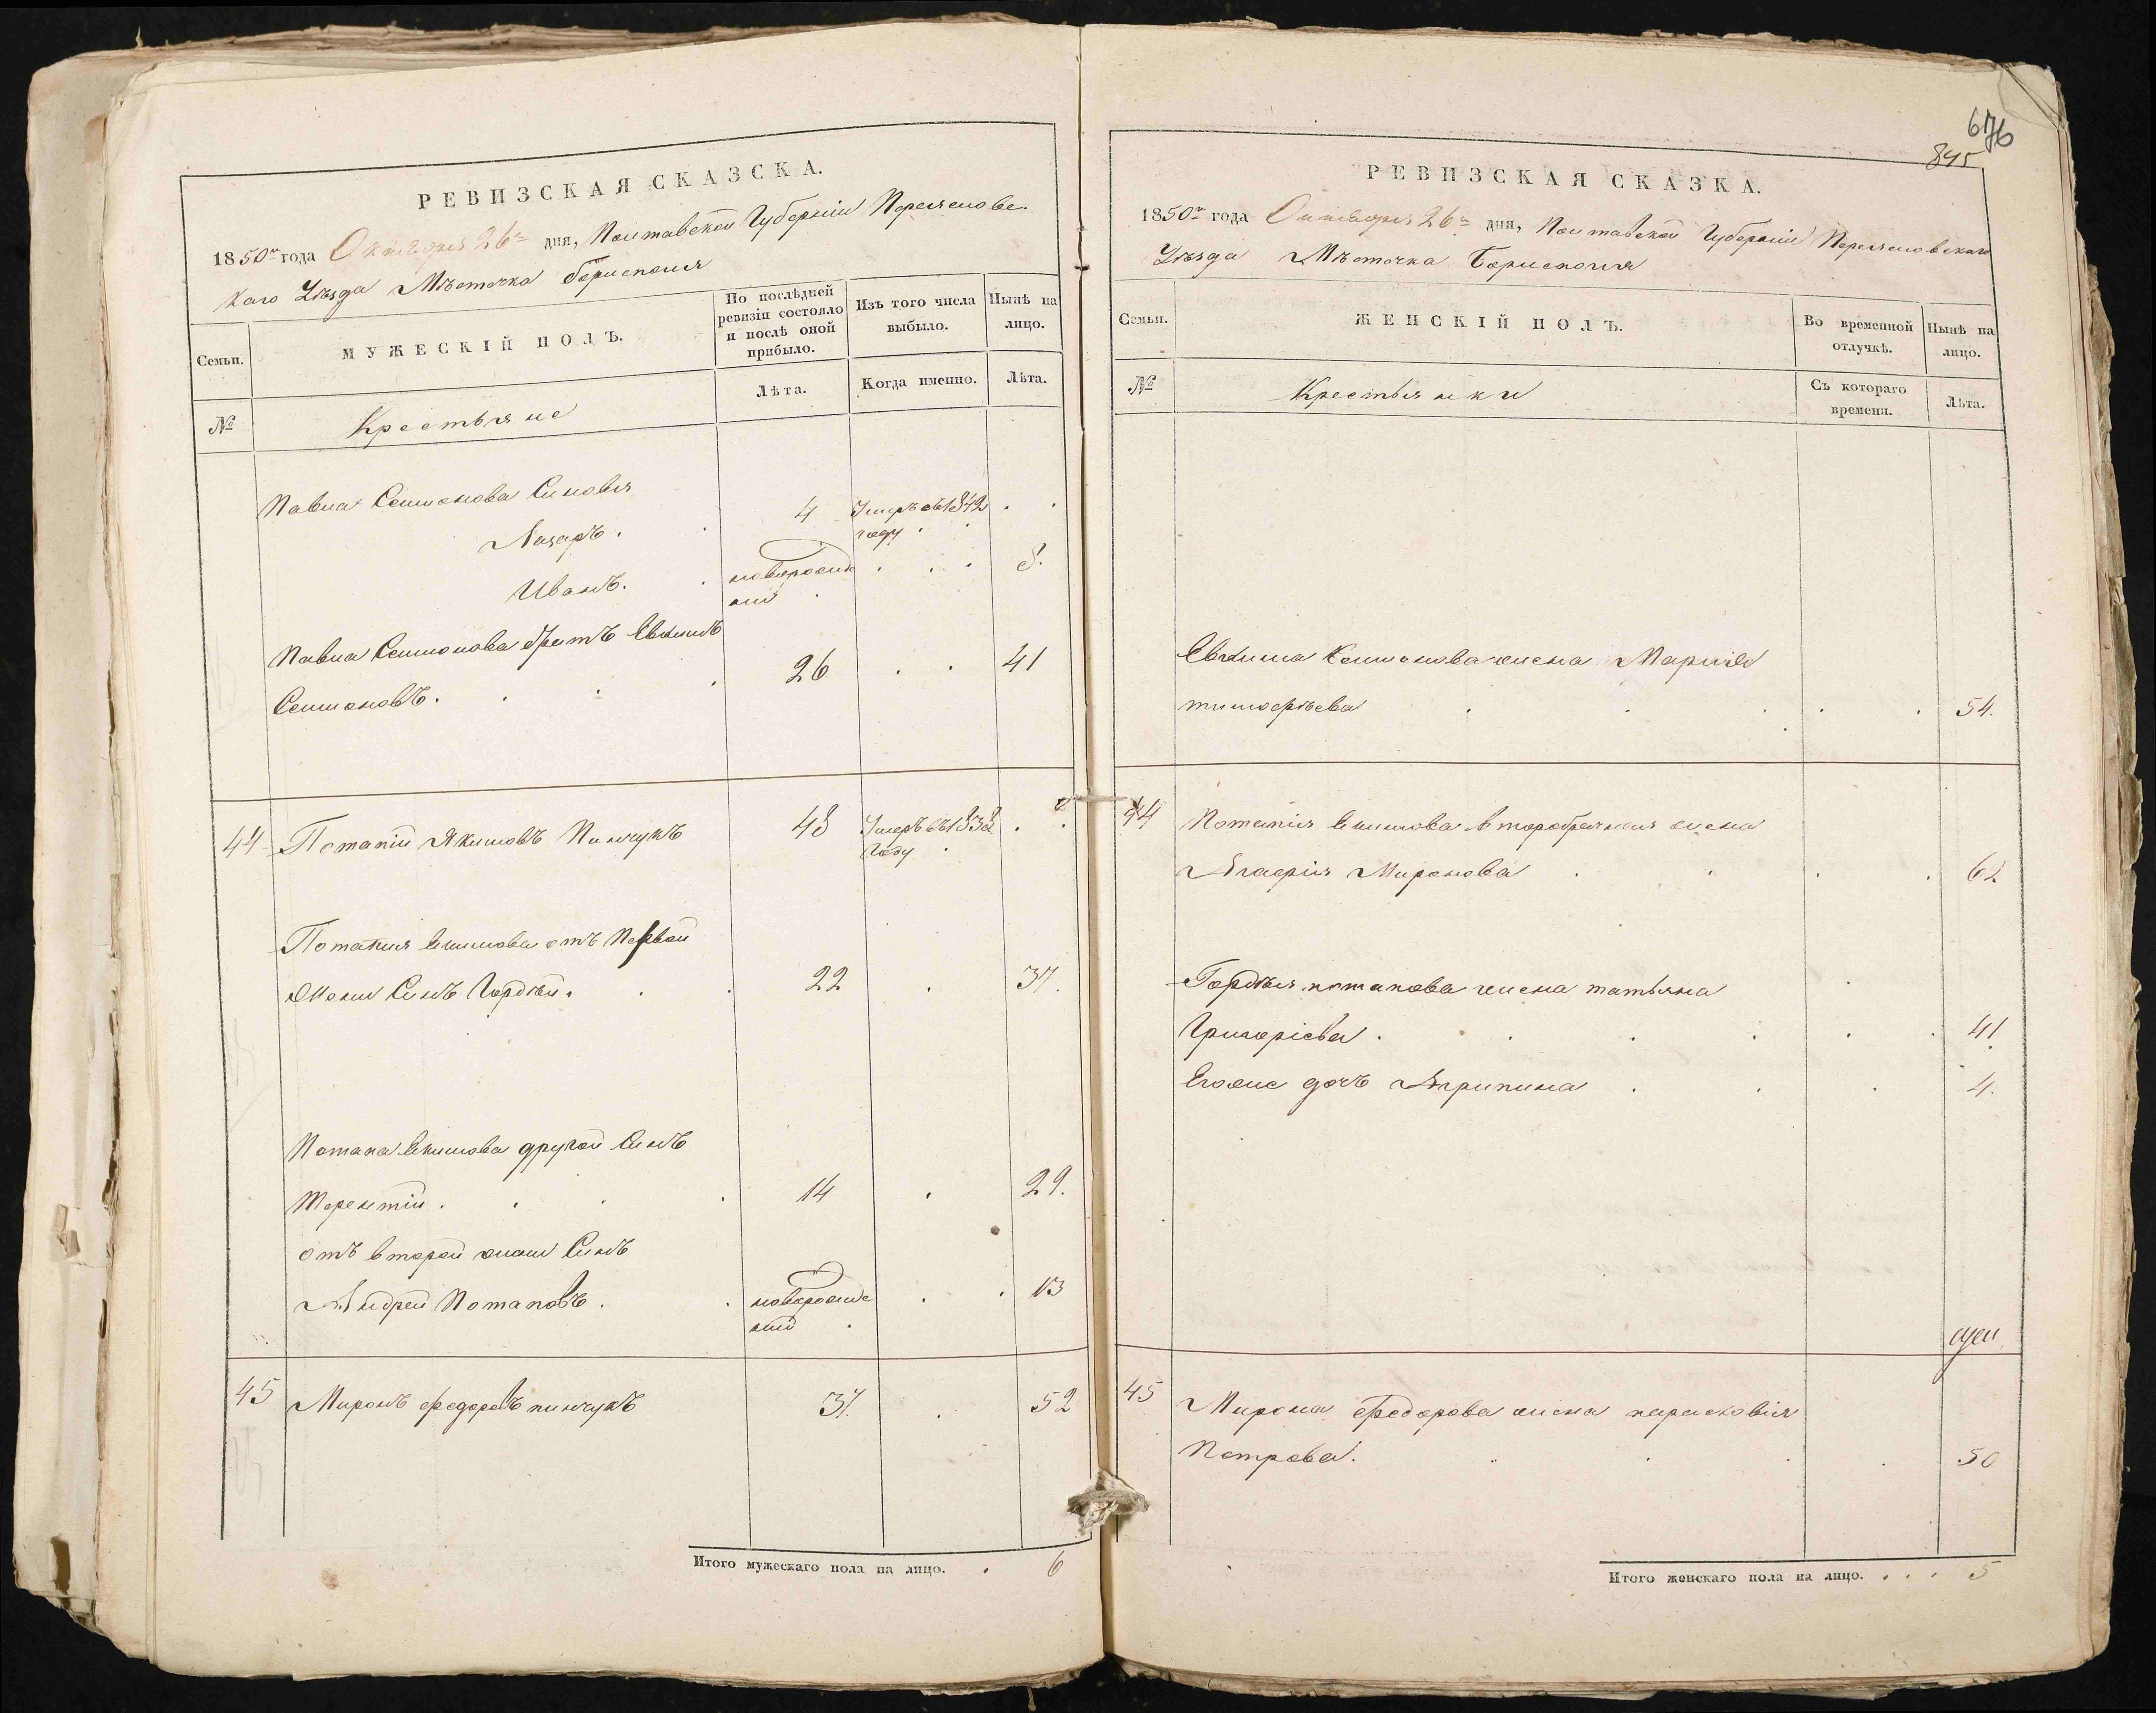 РЕВИЗСКАЯ СКАЗСКА.
1850го года Октября 26го дня, Полтавской Губерніи Переяславс-
каго Уѣзда Мѣстечка Борисполя
Семьи.
МУЖЕСКІЙ ПОЛЪ.
По послѣдней ревизіи состояло и послѣ оной прибыло.
Изъ того числа выбыло.
Нынѣ на лицо.
№
Крестьяне
Лѣта.
Когда именно.
Лѣта.
Павла Семионова Синовья
Лазарь. 4 Умеръ въ 1842
году
Иванъ. новорожде 8.
ний
Павла Семионова братъ Евкимъ
Семионовъ. 26 41
44 Потапій Якимовъ Пинчукъ 43 Умеръ въ 1838
году
Потапия Екимова отъ Первой
Жени Синъ Гордѣй. 22 37.
Потапа Екимова другой Синъ
Терентій. 14 29.
отъ второй жени Синъ
Андрей Потаповъ. новорожде 13
ний
45 Миронъ Федоровъ пинчукъ 37. 52
Итого мужескаго пола на лицо. 6
676
895
РЕВИЗСКАЯ СКАЗКА.
1850го года Октября 26го дня, Полтавской Губерніи Переяславскаго
Уѣзда Мѣстечка Борисполя
Семьи.
ЖЕНСКІЙ ПОЛЪ.
Во временной отлучкѣ.
Нынѣ на лицо.
№
Крестьянки
Съ котораго времени.
Лѣта.
Евкима Семионова жена Марія
тимофѣева 54.
44 Потапія Екимова второбрачная жена
Агафія Миронова 62
Гордѣя потапова жена татьяна
Григоріева. 41
Егоже дочъ Агрипина 4.
45 Мирона Федорова жена парасковія
Петрова. 50
Итого женскаго пола на лицо. . . . 5